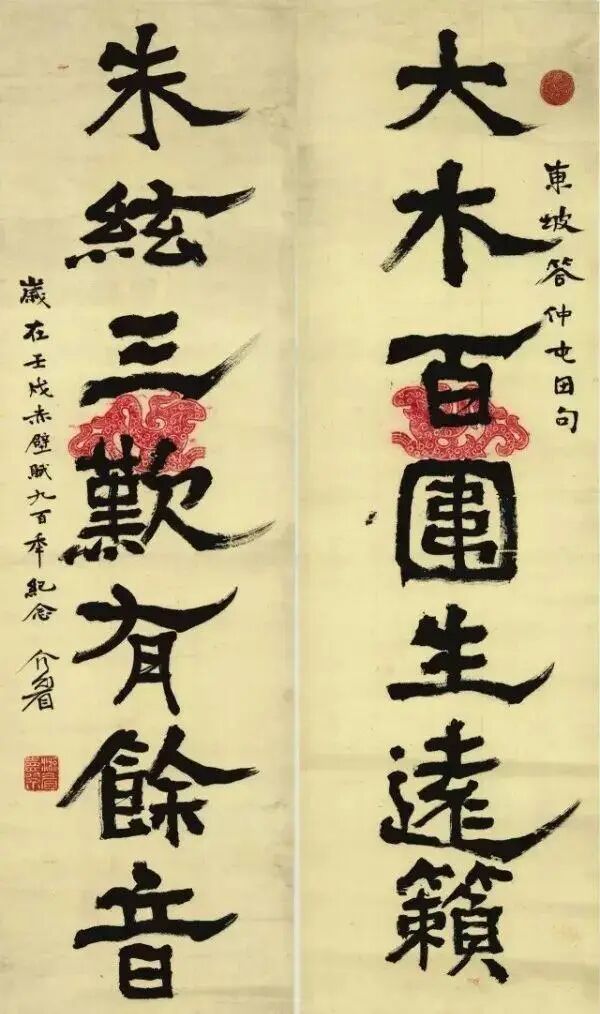 大木百圍生遠籟
東坡答仲屯田句
朱絃三歎有餘音
歲在壬戌赤壁賦九百年紀念 介眉